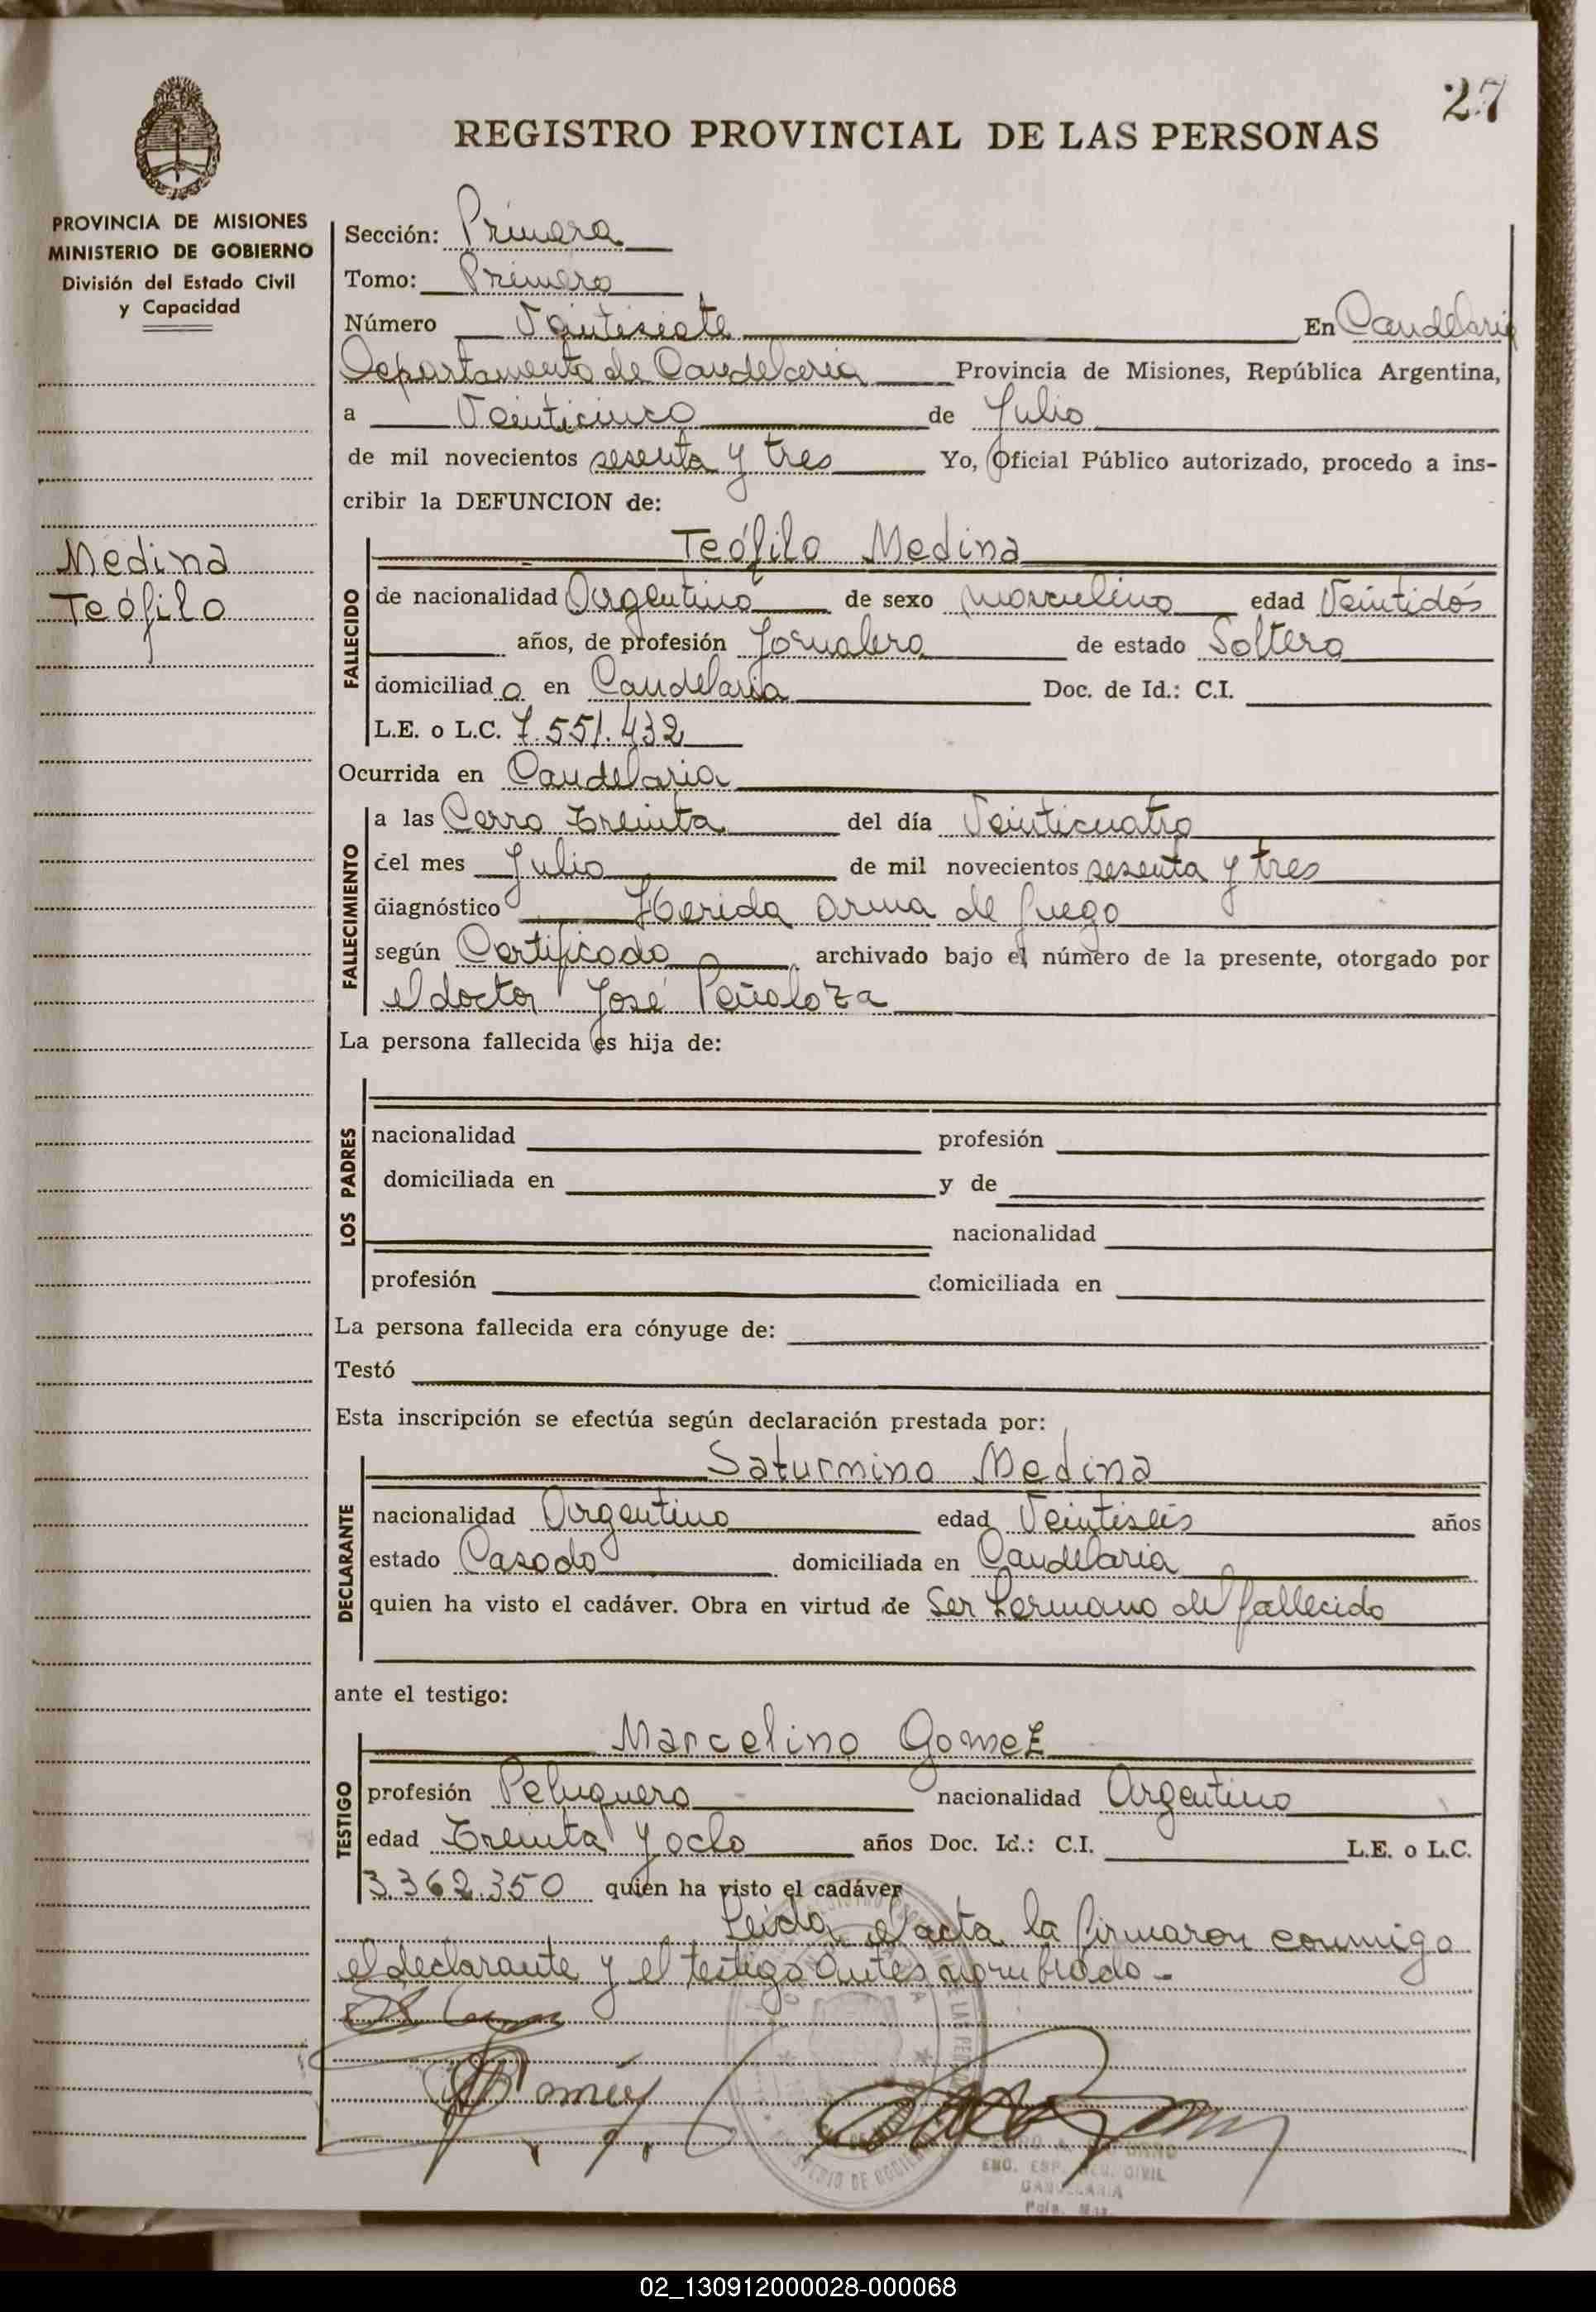 27
REGISTRO PROVINCIAL DE LAS PERSONAS
PROVINCIA DE MISIONES
MINISTERIO DE GOBIERNO
División del Estado Civil
y Capacidad
Medina
Teófilo
Sección: Primera
Tomo: Primero
Número Veintisiete En Candelaria
Departamento de Candelaria Provincia de Misiones, República Argentina,
a Veinticinco de Julio
de mil novecientos sesenta y tres Yo, Oficial Público autorizado, procedo a ins-
cribir la DEFUNCION de:
FALLECIDO
Teófilo Medina
de nacionalidad Argentino de sexo masculino edad Veintidós
años, de profesión Jornalero de estado Soltero
domiciliado en Candelaria Doc. de Id.: C.I.
L.E. o L.C. 7.551.432
Ocurrida en Candelaria
FALLECIMIENTO
a las Cerro treinta del día Veinticuatro
del mes Julio de mil novecientos sesenta y tres
diagnóstico Herida arma de fuego
según Certificado archivado bajo el número de la presente, otorgado por
el doctor José Peñaloza
La persona fallecida es hija de:
LOS PADRES
nacionalidad profesión
domiciliada en y de
nacionalidad
profesión domiciliada en
La persona fallecida era cónyuge de:
Testó
Esta inscripción se efectúa según declaración prestada por:
DECLARANTE
Saturnino Medina
nacionalidad Argentino edad Veintiseis años
estado Casado domiciliada en Candelaria
quien ha visto el cadáver. Obra en virtud de Ser hermano del fallecido
ante el testigo:
TESTIGO
Marcelino Gomez
profesión Peluquero nacionalidad Argentino
edad treinta y ocho años Doc. Id.: C.I. L.E. o L.C.
3.362.350 quien ha visto el cadáver
Leida el acta la firmaron conmigo
el declarante y el testigo antes nombrado.-
CANDELARIA
02_130912000028-000068